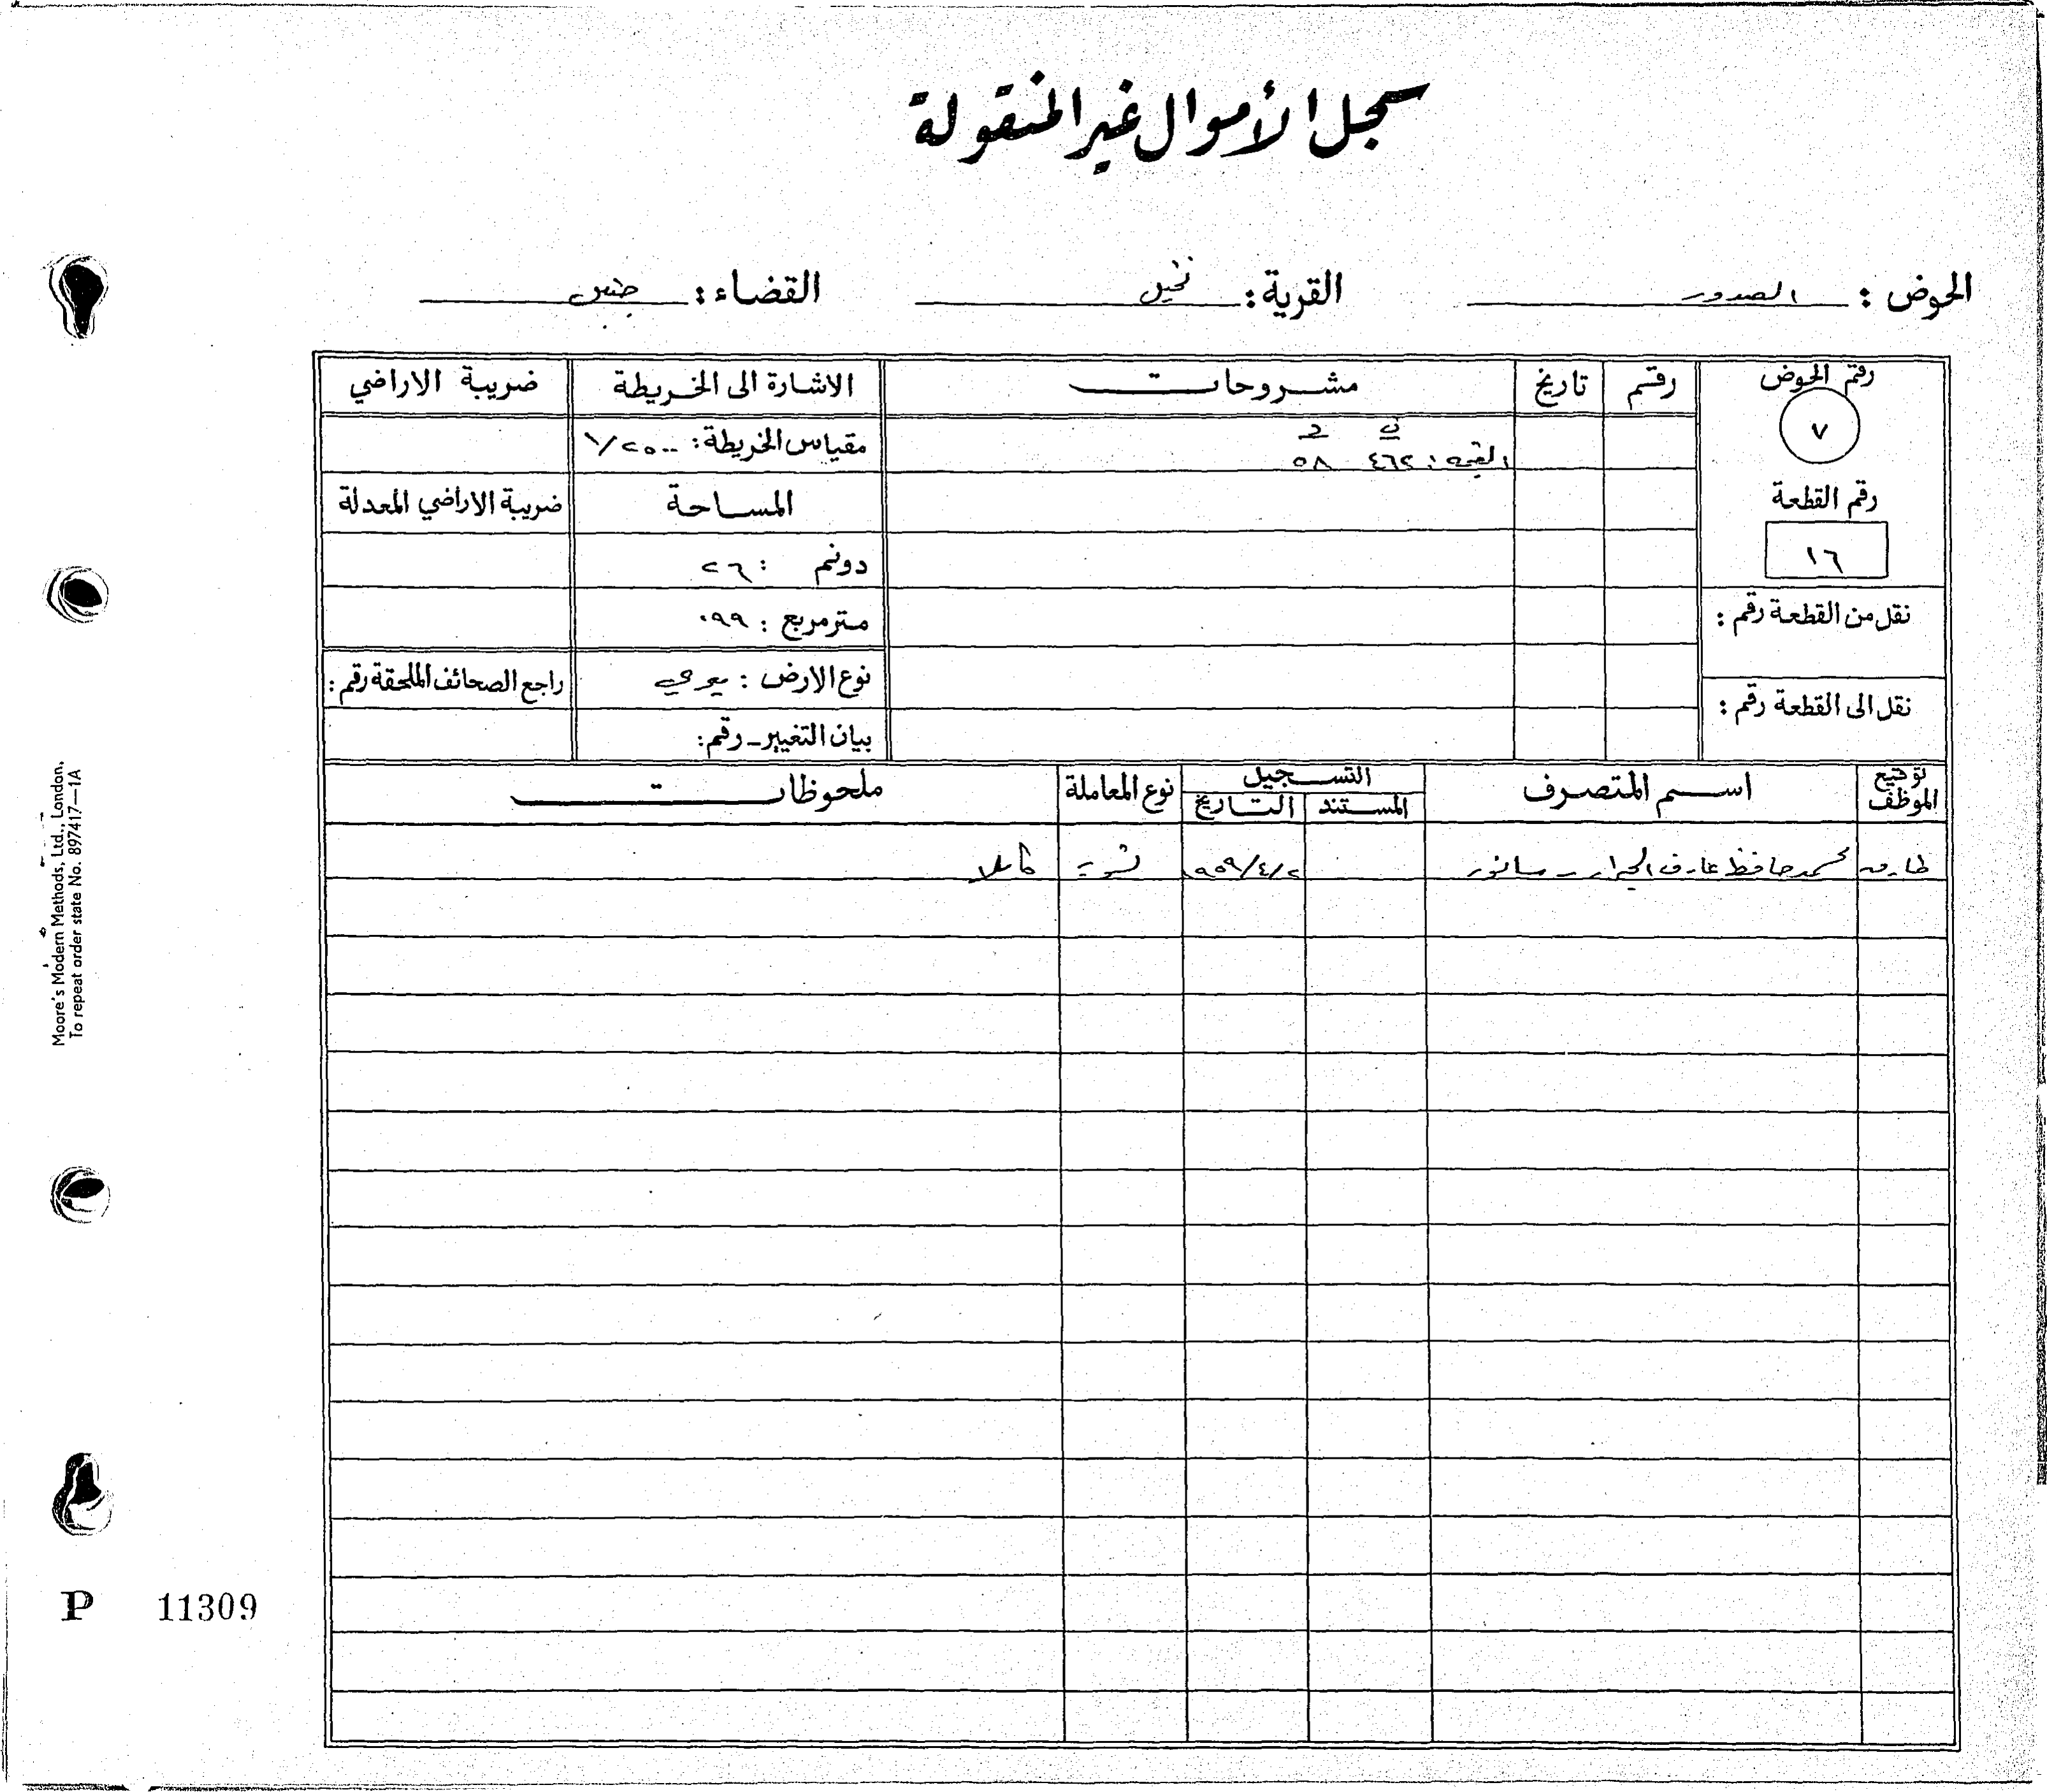 سجل الأموال غير المنقولة
الحوض : الصدور القرية : نخيل القضاء : جنين
رقم الحوض رقم تاريخ مشروحات الاشارة الى الخريطة ضريبة الاراضي
٧
ف د
القيمة : ٤٦٢ ٥٨ مقياس الخريطة : ١/٢٥٠٠
رقم القطعة المساحة ضريبة الاراضي المعدلة
١٦ دونم : ٢٦
نقل من القطعة رقم : متر مربع : ٠٩٩
نوع الارض : ميري راجع الصحائف الملحقة رقم :
نقل الى القطعة رقم : بيان التغيير - رقم :
توقيع الموظف اسم المتصرف التسجيل نوع المعاملة ملحوظات
المستند التاريخ
طارق محمد حافظ عارف الجرار - سانور ١٩٥٩/٤/٢ تسوية كاملا
Moore's Modern Methods, Ltd., London.
To repeat order state No. 897417—1A
P 11309